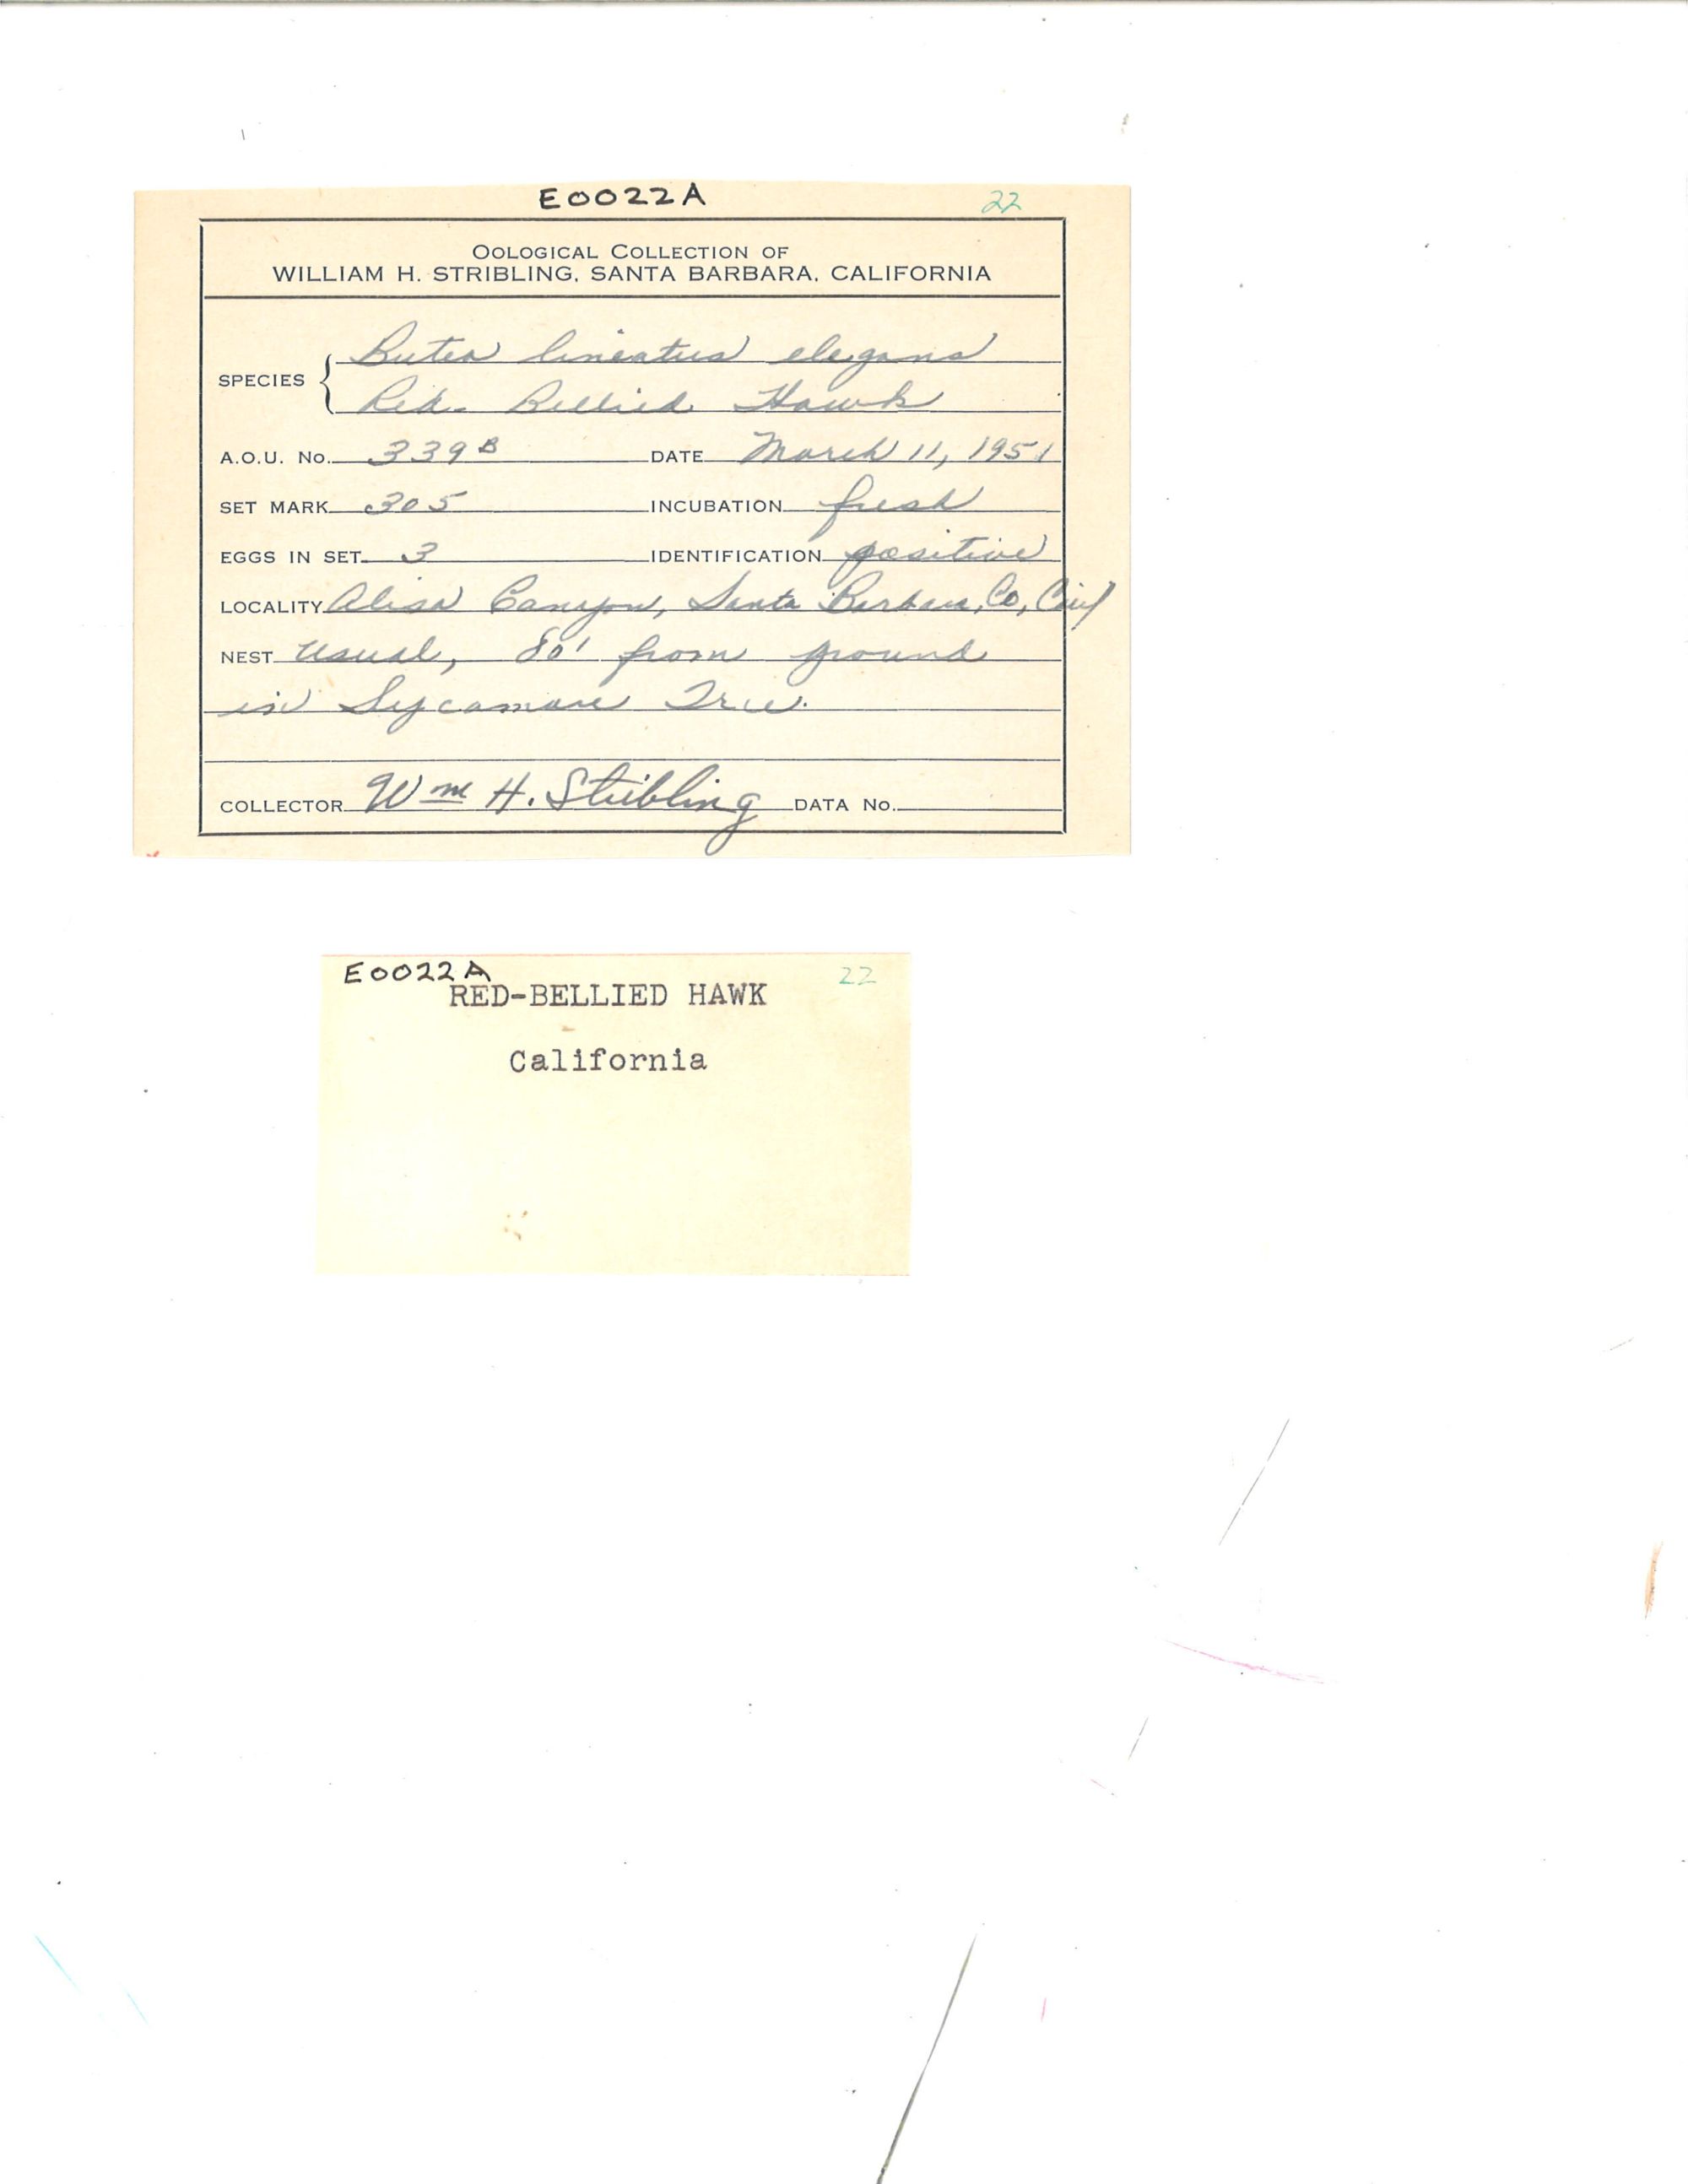 E0022A 22
OOLOGICAL COLLECTION OF
WILLIAM H. STRIBLING, SANTA BARBARA, CALIFORNIA
SPECIES { Buteo lineatus elegans
Red-Bellied Hawk
A.O.U. No. 339B DATE March 11, 1951
SET MARK 305 INCUBATION fresh
EGGS IN SET 3 IDENTIFICATION positive
LOCALITY Alisa Canyon, Santa Barbara, Co, Calif
NEST usual, 80' from ground
in Sycamore Tree.
COLLECTOR Wm H. Stribling DATA No.
E0022A 22
RED-BELLIED HAWK
California